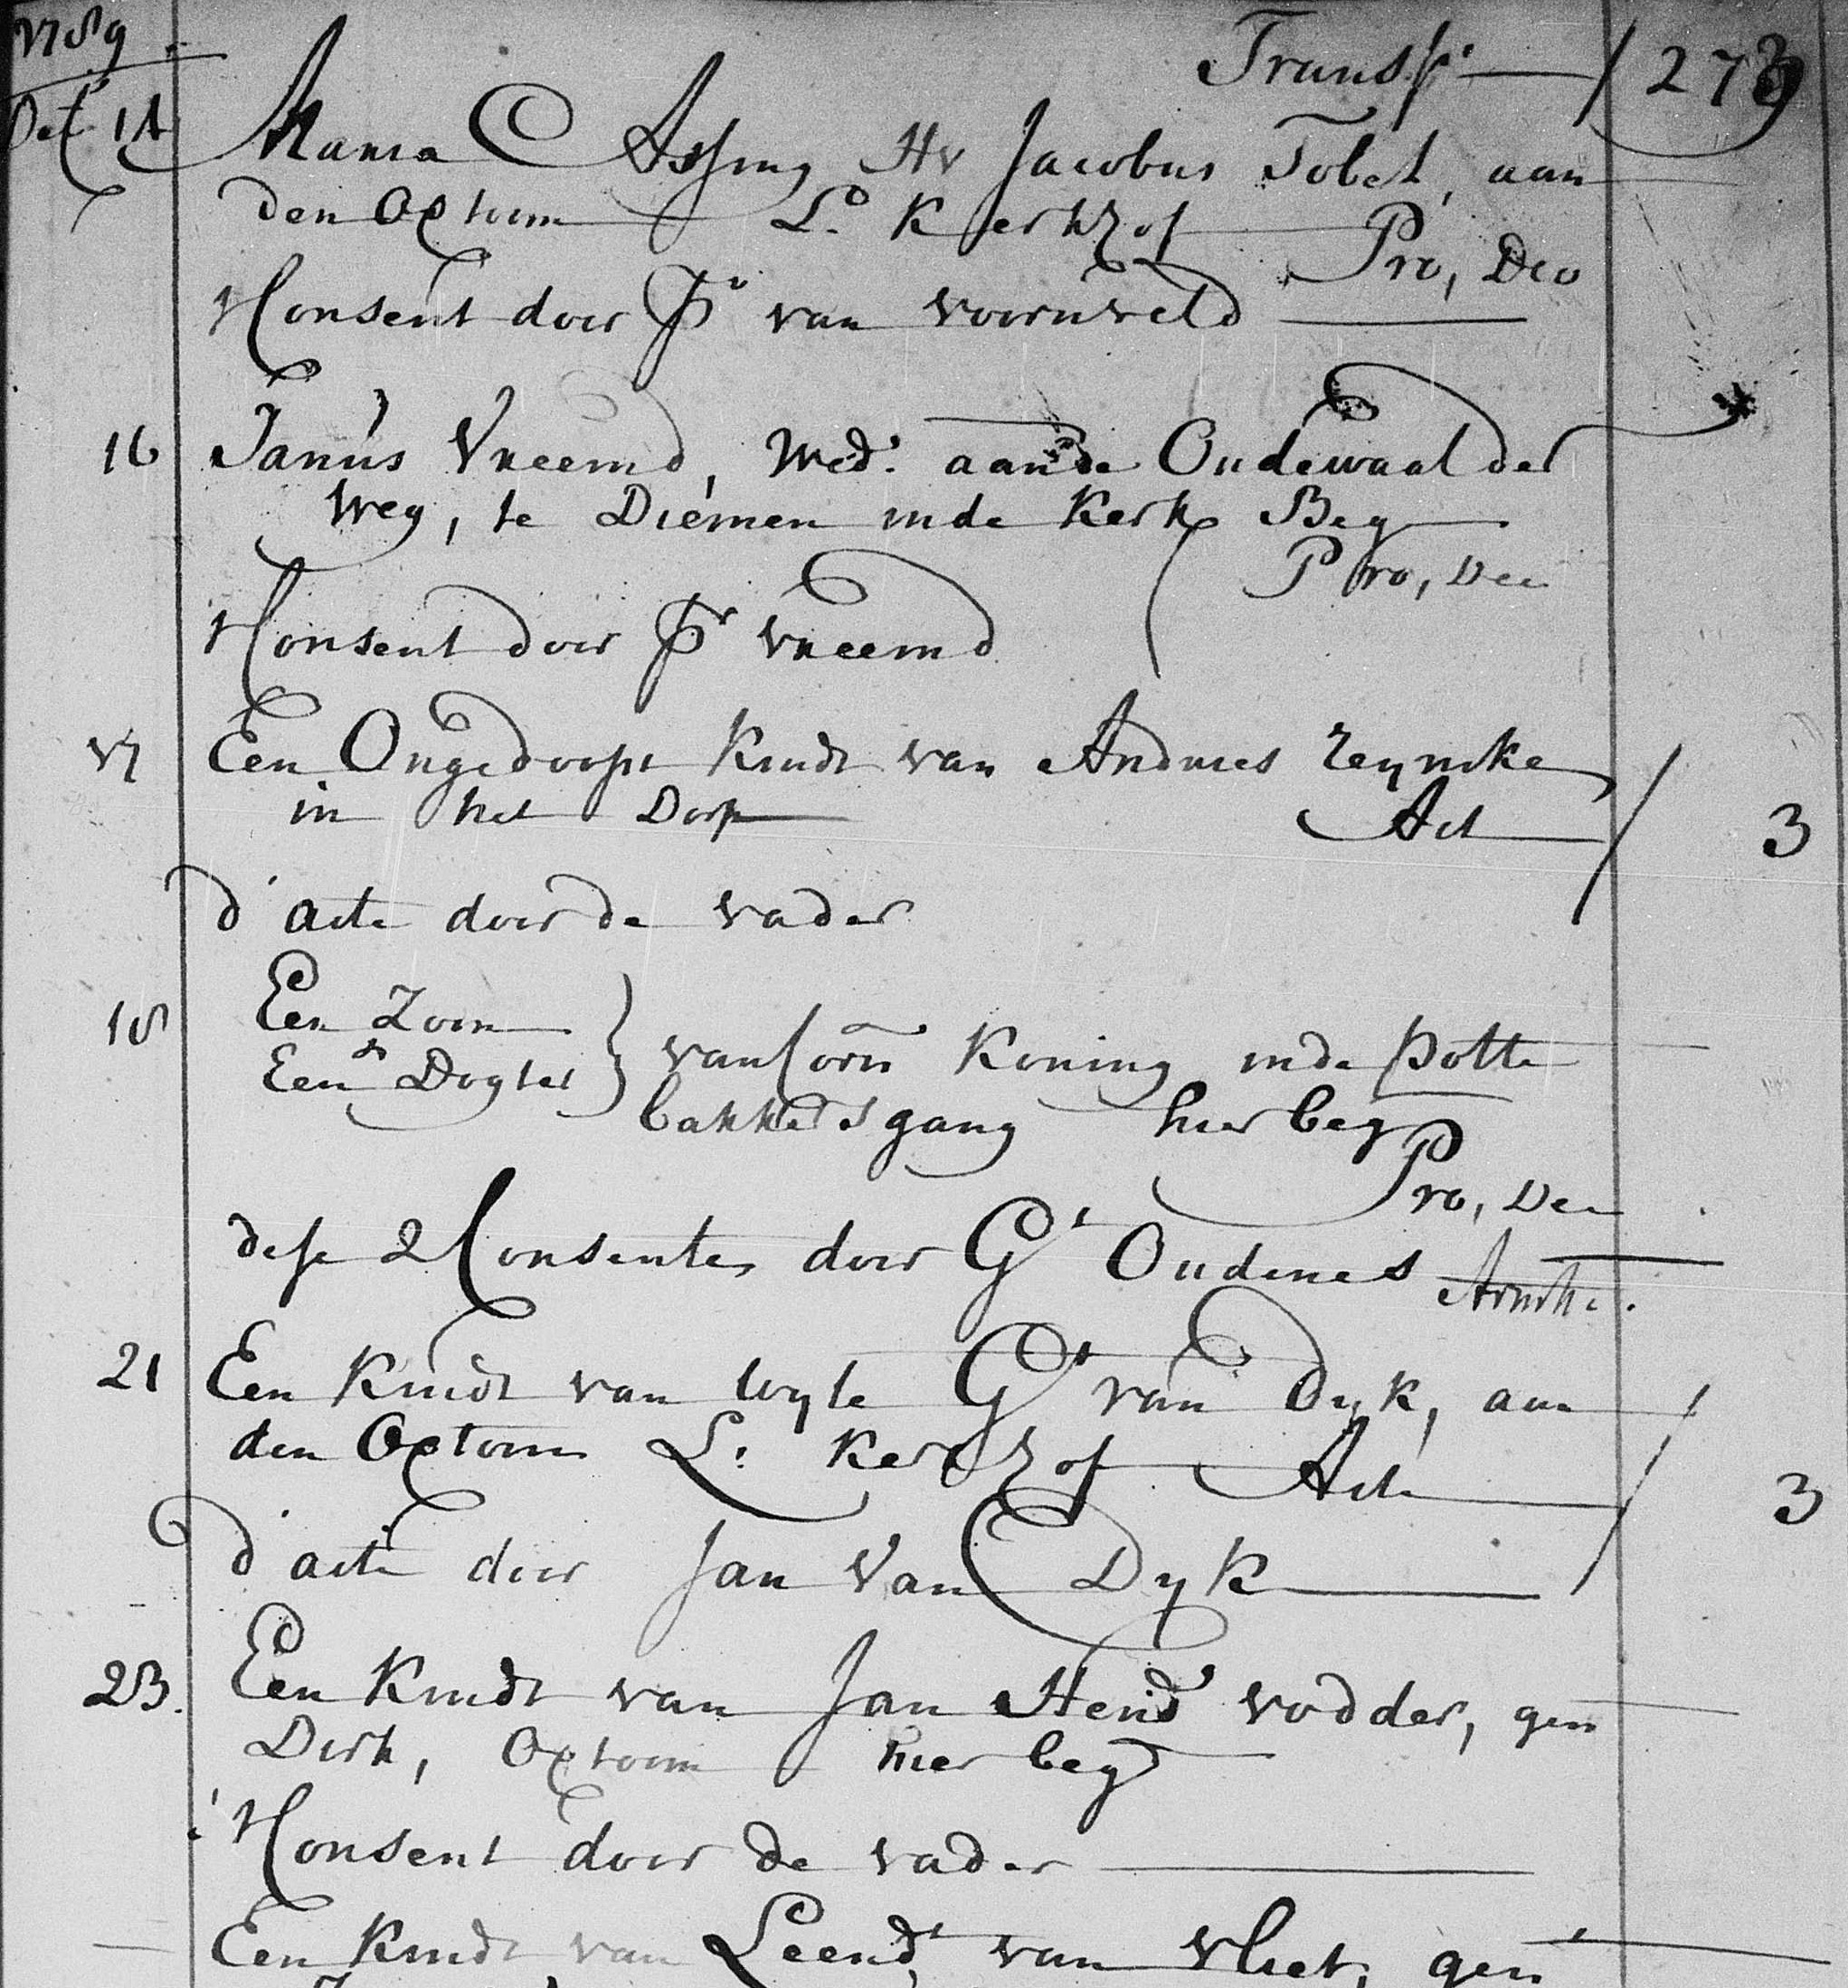 1789
Transpt / 273
Dec 14 Maria Assing Hv Jacobus Tobel, aan
den Oetoom L. Kerkhof
Pro, Deo
't Consent door Pr van voornveld
16 Janus Vreemd, Wed. aande Oudewaal der
weg, te Diemen inde Kerk Beg
Pro, Deo
't Consent door Pr vreemd
17 Een Ongedoopt Kindt van Andries Reynike
in het Dorp Act / 3
d' acte door de vader
18 Een Zoon
Een Dogter } van Corn Koning inde potte
bakkers gang hier beg
Pro, Deo
dese 2 Consenten door Gt Oudenes
21 Een Kindt van wyle Gt van Dyk, aan
den Oetoom L. Kerkhof Act / 3
d' acte door Jan Van Dyk
23. Een Kindt van Jan Hend vodder, gen
Dirk, Oetoom hier beg
't Consent door de vader
Een Kindt van Leend van vliet, gen